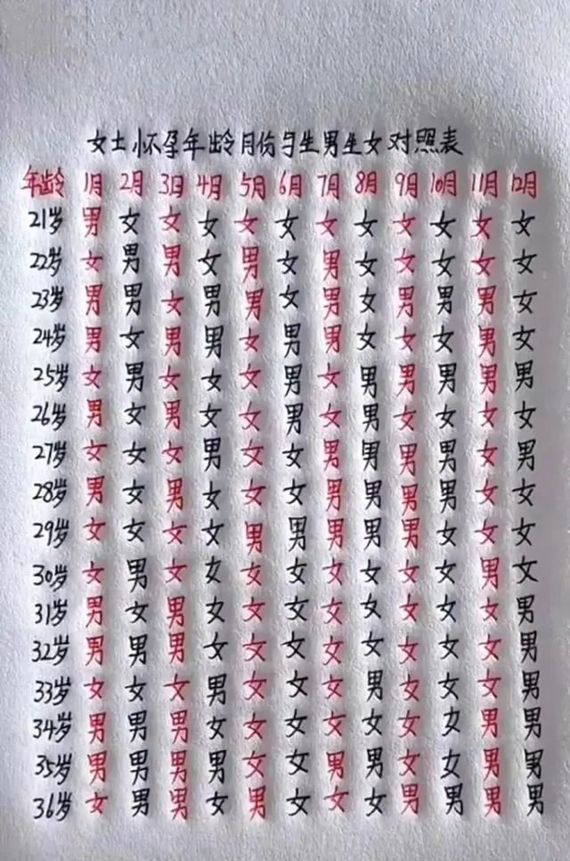 女士怀孕年龄月份与生男生女对照表
年龄 1月 2月 3月 4月 5月 6月 7月 8月 9月 10月 11月 12月
21岁 男 女 女 女 女 女 女 女 女 女 女 女
22岁 女 男 男 女 男 女 男 女 女 女 女 女
23岁 男 男 女 男 男 女 男 女 男 男 男 女
24岁 男 女 男 男 女 男 男 女 女 女 男 女
25岁 女 男 女 女 女 男 女 男 男 男 男 男
26岁 男 女 男 女 女 男 男 男 女 女 女 女
27岁 女 女 女 男 女 女 男 男 男 男 女 男
28岁 男 女 男 女 女 女 男 男 男 男 女 女
29岁 女 女 女 女 男 男 男 男 男 女 女 女
30岁 女 男 女 女 女 女 女 女 女 女 男 女
31岁 男 女 男 女 女 女 女 女 女 女 女 男
32岁 男 男 男 女 女 女 女 女 女 女 女 男
33岁 女 女 女 男 女 女 女 男 女 女 女 男
34岁 男 男 男 女 女 女 女 女 女 女 男 男
35岁 男 男 男 男 女 女 男 男 女 女 男 男
36岁 女 男 男 女 男 女 女 女 男 男 男 男